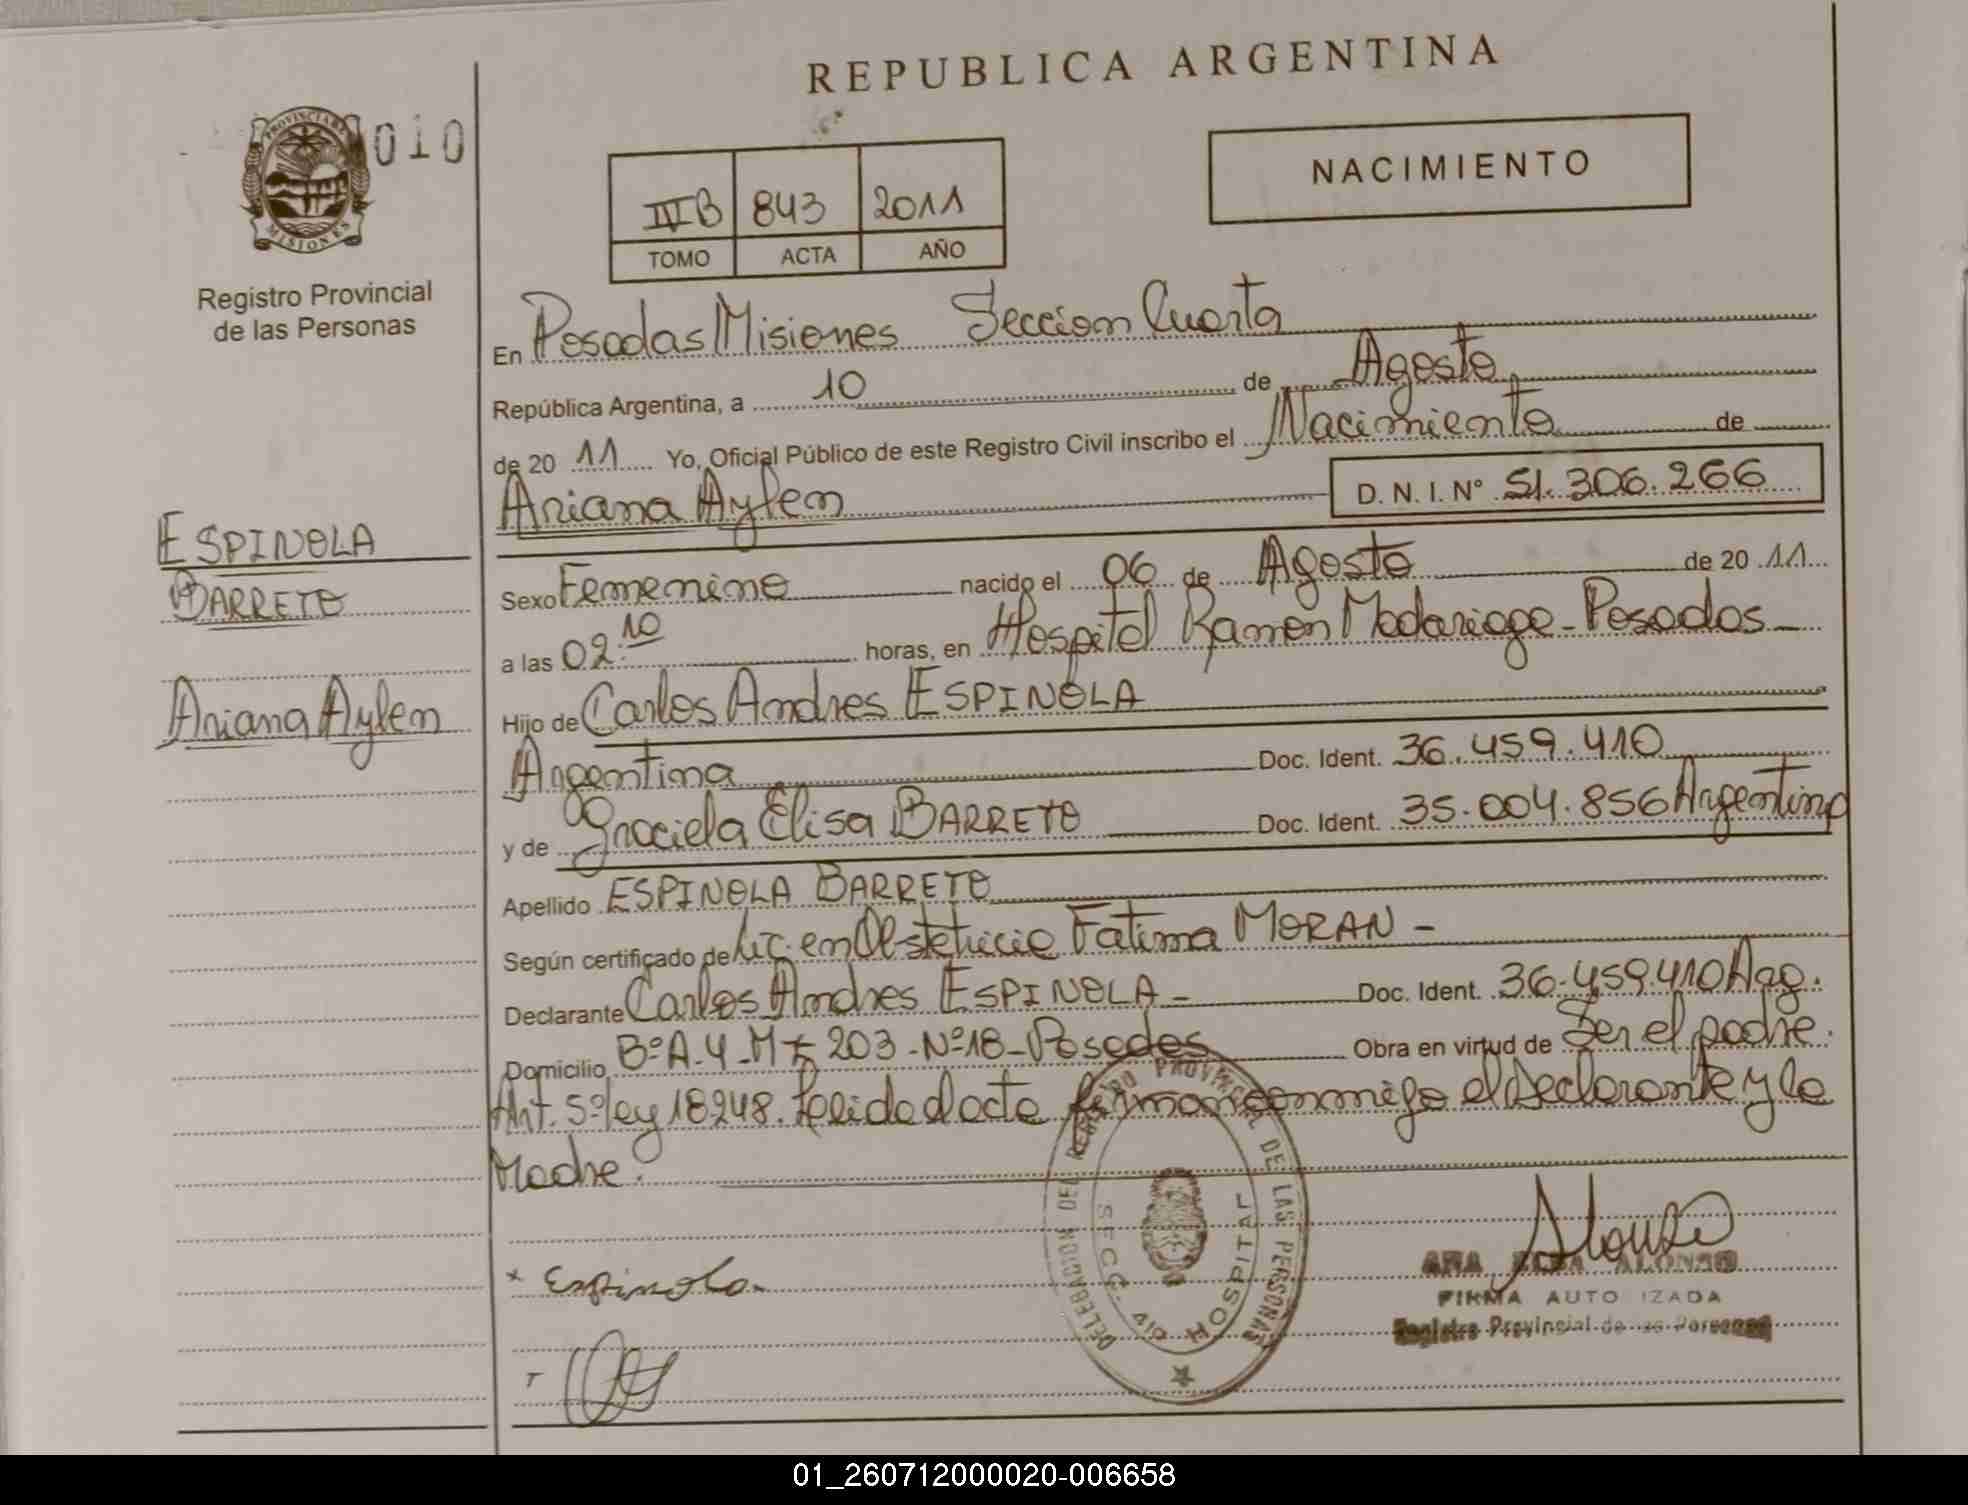 REPUBLICA ARGENTINA
PROVINCIA DE
MISIONES
010
Registro Provincial
de las Personas
NACIMIENTO
IVB 843 2011
TOMO ACTA AÑO
En Posadas Misiones Seccion Cuarta
República Argentina, a 10 de Agosto
de 20 11 Yo, Oficial Público de este Registro Civil inscribo el Nacimiento de
Ariana Aylen D. N. I. Nº 51.306.266
ESPINOLA
BARRETO
Ariana Aylen
Sexo Femenino nacido el 06 de Agosto de 20 11
a las 02:10 horas, en Hospital Ramon Madariaga - Posadas -
Hijo de Carlos Andres ESPINOLA
Argentina Doc. Ident. 36.459.410
y de Graciela Elisa BARRETO Doc. Ident. 35.004.856 Argentina
Apellido ESPINOLA BARRETO
Según certificado de Lic. en Obstetricia Fatima MORAN -
Declarante Carlos Andres ESPINOLA - Doc. Ident. 36.459.410 Arg.
Domicilio Bº A-4-Mz 203-Nº18-Posadas Obra en virtud de Ser el padre.
Art. 5º ley 18248. Leida el acta firman conmigo el Declarante y la
Madre.
DELEGACION DEL REGISTRO PROVINCIAL DE LAS PERSONAS
SECC. 4ta HOSPITAL
x Espinola
Alonso
ANA ALONSO
FIRMA AUTORIZADA
Registro Provincial de las Personas
01_260712000020-006658